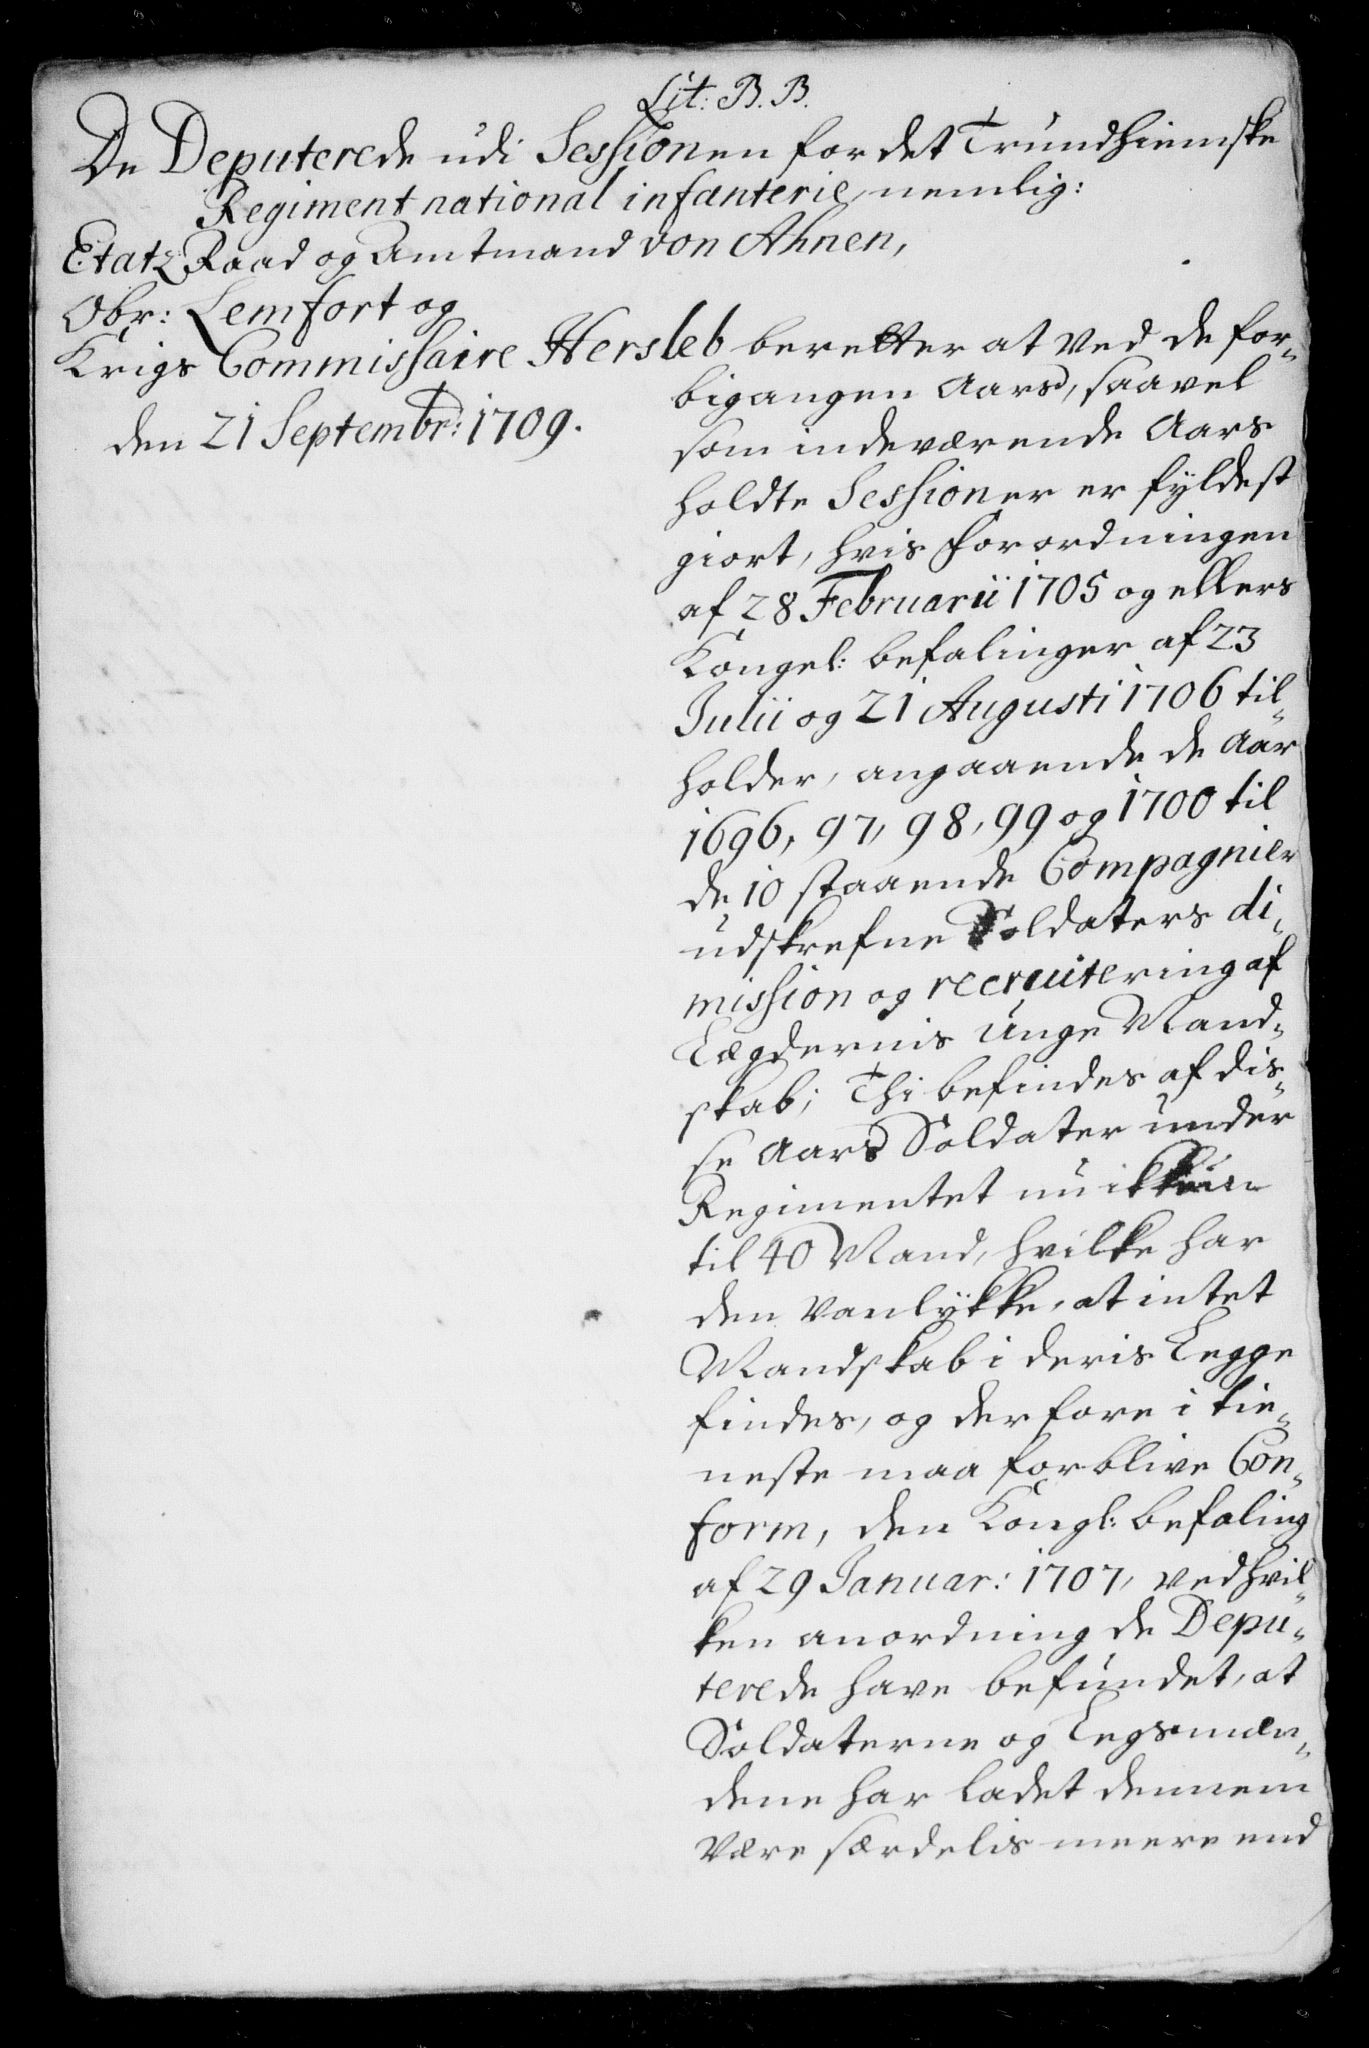 Lit: B. B.
De Deputerede udi Sessionen for det Trundhiemske
Regiment national infanterie, nemlig:
Etatz Raad og Amtmand von Ahnen,
Obr: Lemfort og
Krigs Commissaire Hersleb beretter at ved de for-
den 21 Septembr: 1709.
bigangen Aars, saavel
som indeværende Aars
holdte Sessioner er fyldest
giort, hvis Forordningen
af 28 Februarii 1705 og ellers
Kongel: befalinger af 23
Julii og 21 Augusti 1706 til-
holder, angaaende de Aar
1696, 97, 98, 99 og 1700 til
de 10 staaende Compagnier
udskrefne Soldaters di-
mission og recruitering af
Lægdernis unge Mand-
skab; Thi befindes af dis-
se Aars Soldater under
Regimentet nu ikkun
til 40 Mand, hvilke har
den vanlykke, at intet
Mandskab i deris Legge
findes, og derfore i tie-
neste maa forblive Con-
form, den Kongl: befaling
af 29 Januar: 1707, ved hvil-
ken anordning de Depu-
terede have befundet, at
Soldaterne og Legsmæn-
dene har ladet dennem
være særdelis meere end